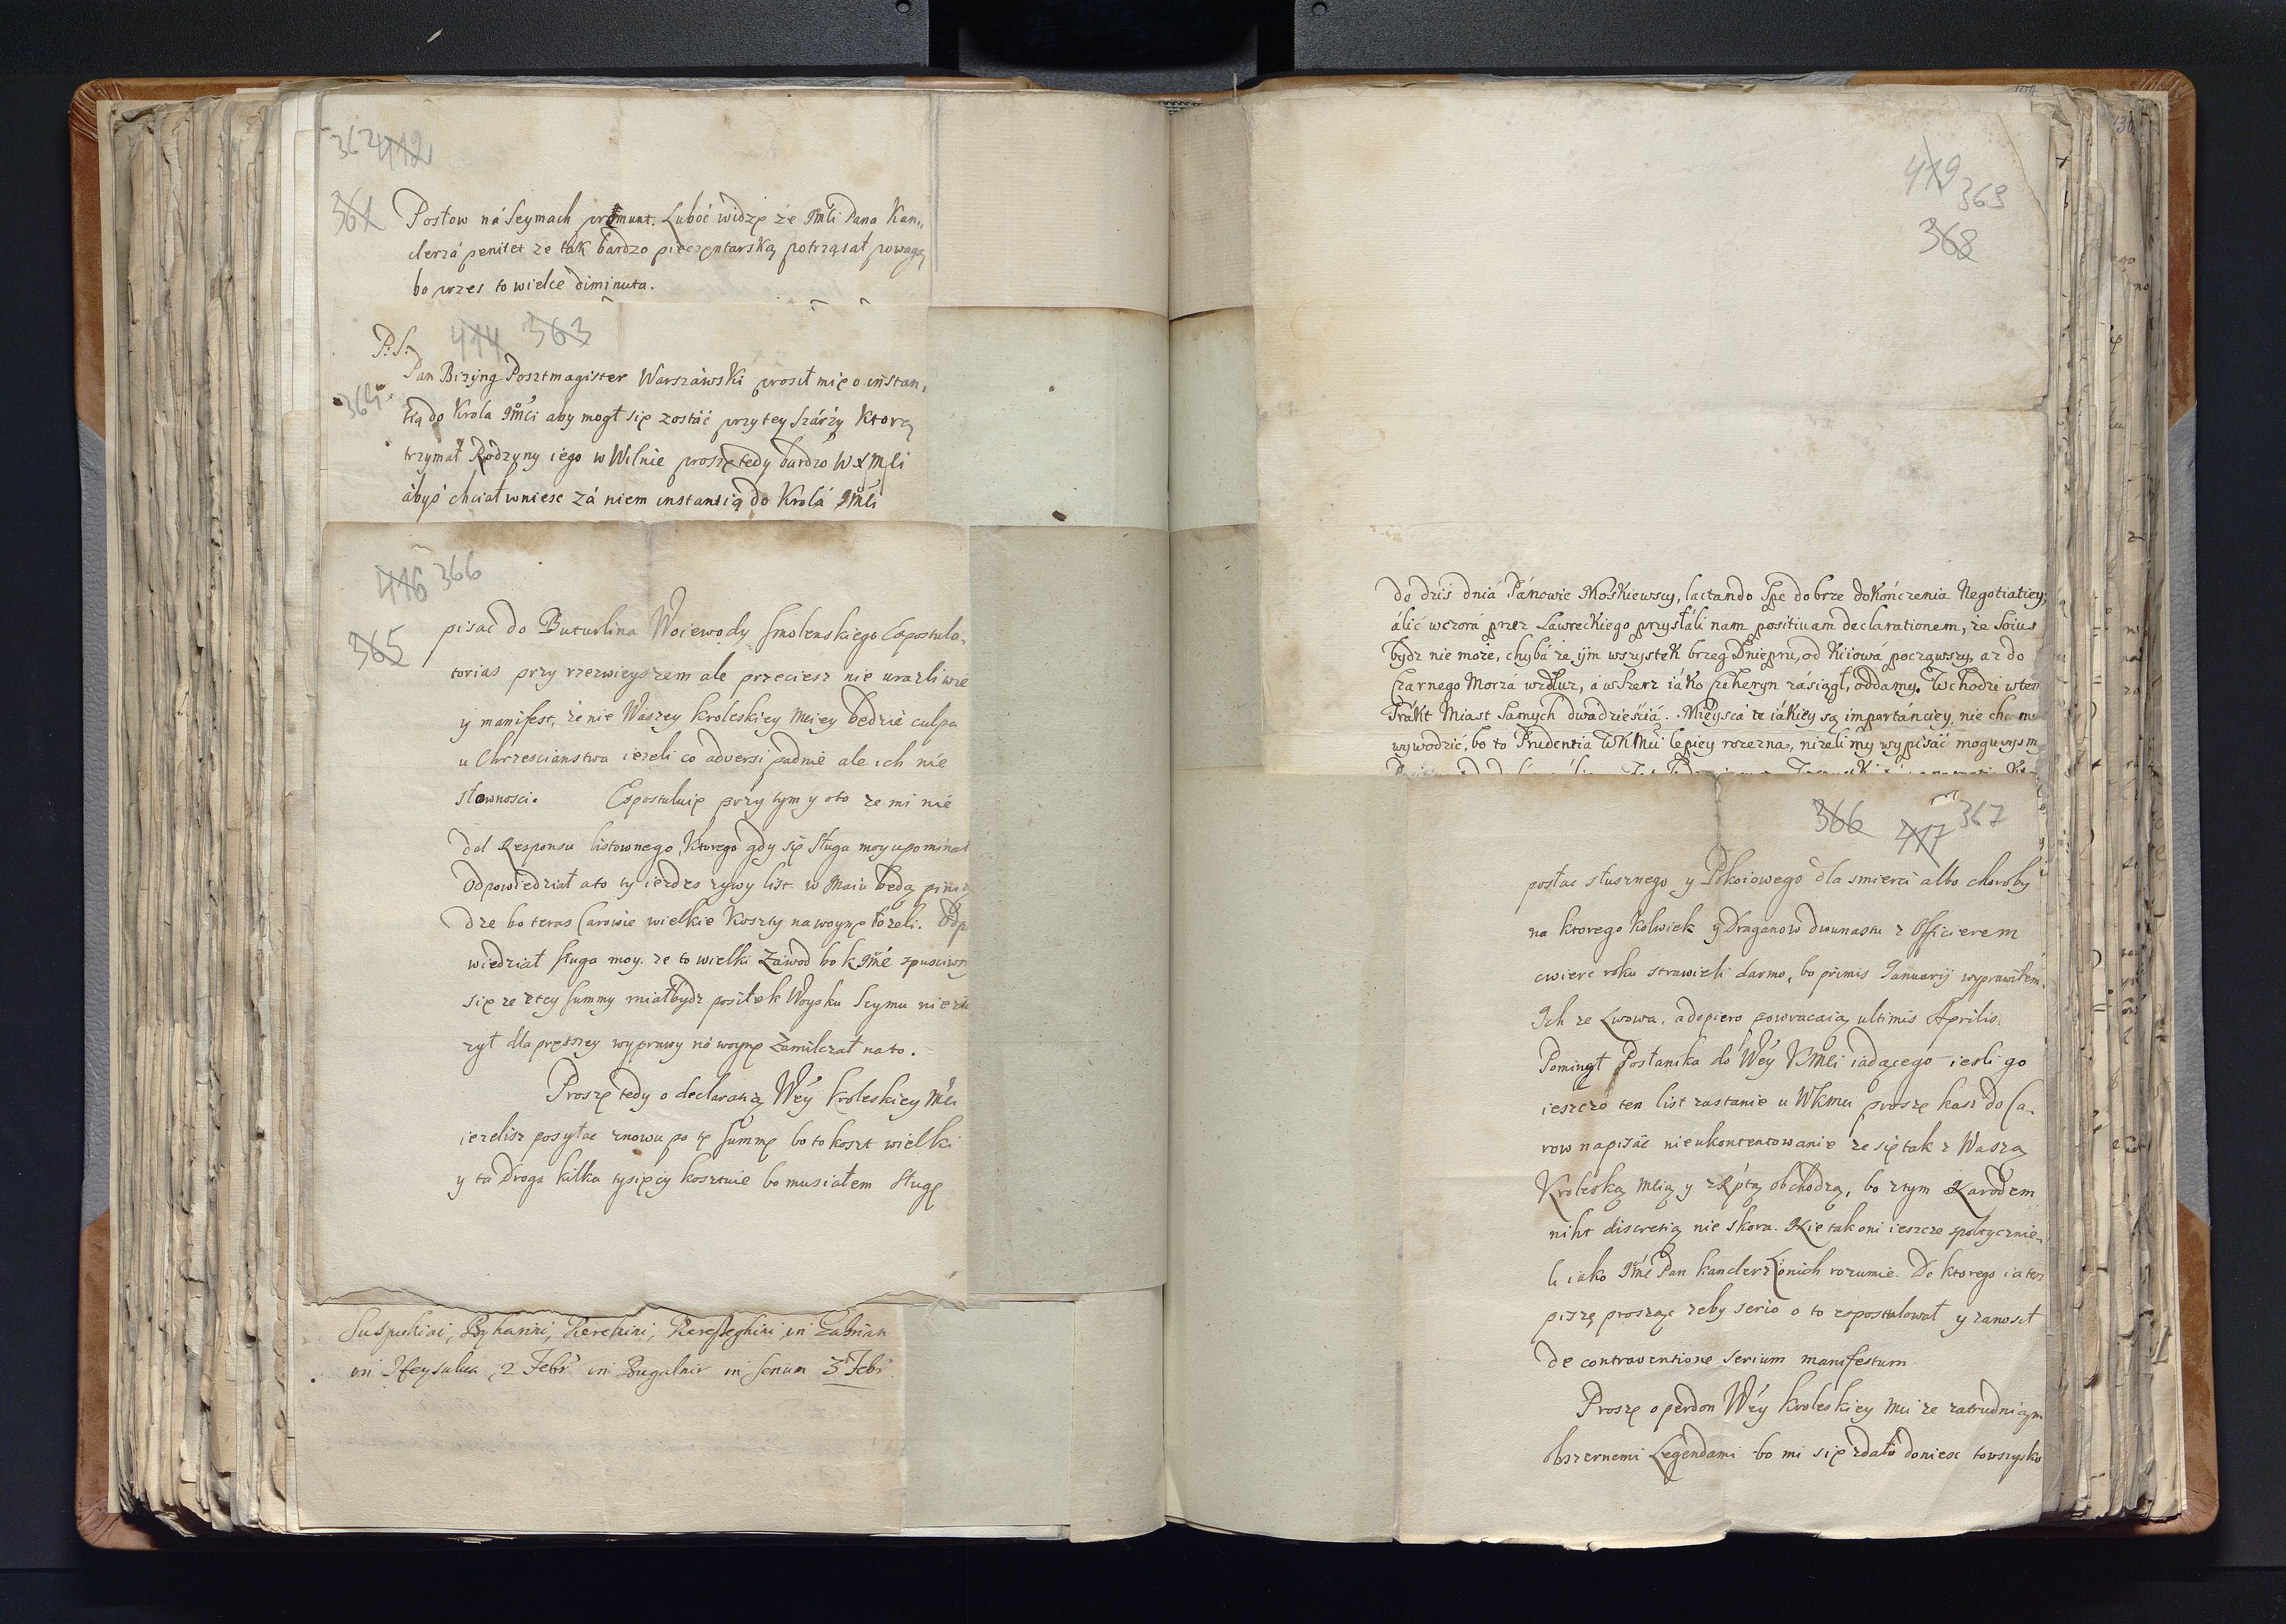 362 412
361
Posłow ná Seymach promunt. Luboć widzę że JMći Pana Kan„
clerzá penitet ze tak bardzo pieczentarską potrząsał powagą
bo przes to wielce diminuta.
414 363
P: S:
364
Pan Bizÿng Posztmagister Warszáwski prosił mię o instan„
tią do Krola JMći aby mogł się zostáć przy tey szárży ktorą
trzymał Rodzyny iego w Wilnie proszę tedy bardzo
ábyś chciał wniesc zá niem instantią do Krolá JMći
416 366
365
pisać do Buturlina Woiewody Smolenskiego Expostula„
torias przy rzezwieyszem ale przeciesz nie urazliwie
y manifest, że nie Waszey Kroleskiey Mciey będzie culpa
u Chrzescianstwa iezeli co adversi padnie ale ich nie
słownosci. Expostuluię przy tym y oto ze mi nie
dał Responsu listownego, Ktorego gdy się sługa moy upominał
Odpowiedział a to ty iezdes zywy list. w Maiu będą
dze bo teras Carowie wielkie Koszty na woynę łozeli.
wiedział sługa moy. ze to wielki Zawod bo
się ze z tey summy miał bydz posiłek Woysku Seymu nie
zył dla prętszey wyprawy ná woynę Zamilczał na to.
Proszę tedy o declaratią Wey Kroleskiey Mći
iezelisz posyłac znowu po tę summę bo to koszt wielki
y ta droga kilka tysięcy kosztuie bo musiałem sługę
in
in 2 Febr in in 3 Febr
419 369
368
do dzis dniá Pánowie Moskiewscy, lactando Spe dobrze dokończenia Negotiatiey,
álić wczorá przez Ławreckiego przysłáli nam positivam declarationem, ze Soius
bydz nie może, chybá ze ijm wszystek brzeg Dniepru, od Kiiowá począwszy, az do
Czarnego Morzá wzdłuz, á wszerz iáko Czeheryn zásiągł, oddamy. Wchodzi w ten
Trákt Miast samych dwadzieściá. Mieyscá te iákiey są importánciey, nie
wywodzić, bo to Prudentia WKMći lepiey rozezna, nizeli my wypisáć
366 417 367
posłac słusznego y Pokoiowego dla smierci albo choroby
na ktorego kolwiek y Draganow dwunastu z Officierem
cwierc roku strawieli darmo, bo primis Januarij wyprawiłem
Ich ze Lwowa, a dopiero powracaią ultimis Aprilis.
Pominął Posłanika do Wey KMći iadącego iesli go
ieszcze ten list zastanie u WKMći proszę kasz do Ca„
row napisać nieukontentowanie ze się tak z Waszą
Kroleską Mcią y zRptą obchodzą, bo z tym Narodem
niht discretią nie skora. Nie tak oni ieszcze spolitycznie„
li iako JMć Pan kanclerz o nich rozumie. Do ktorego ia tez
piszę prosząc zeby serio o to expostulował y zanosił
de contraventione serium manifestum
Proszę o perdon Wey Kroleskiey Mći ze zatrudniam
obszernemi Legendami bo mi się zdało doniesc to wszysko